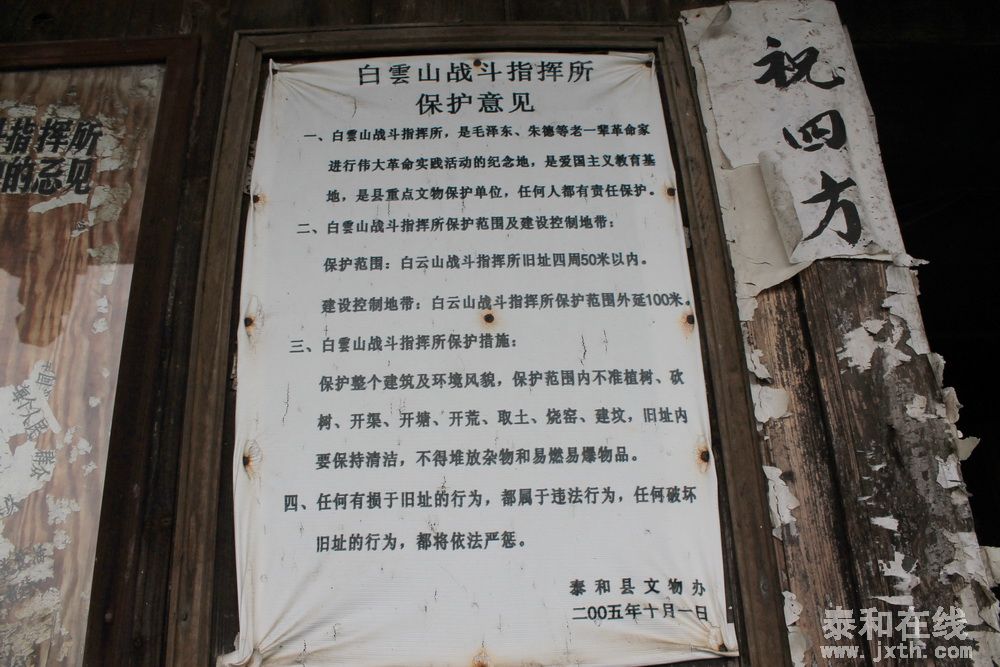 白雲山战斗指挥所
保护意见
一、白雲山战斗指挥所，是毛泽东、朱德等老一辈革命家
进行伟大革命实践活动的纪念地，是爱国主义教育基
地，是县重点文物保护单位，任何人都有责任保护。
二、白雲山战斗指挥所保护范围及建设控制地带：
保护范围：白云山战斗指挥所旧址四周50米以内。
建设控制地带：白云山战斗指挥所保护范围外延100米。
三、白雲山战斗指挥所保护措施：
保护整个建筑及环境风貌，保护范围内不准植树、砍
树、开渠、开塘、开荒、取土、烧窑、建坟，旧址内
要保持清洁，不得堆放杂物和易燃易爆物品。
四、任何有损于旧址的行为，都属于违法行为，任何破坏
旧址的行为，都将依法严惩。
泰和县文物办
二00五年十月一日
指挥所
的意见
祝四方
泰和在线
www.jxth.com